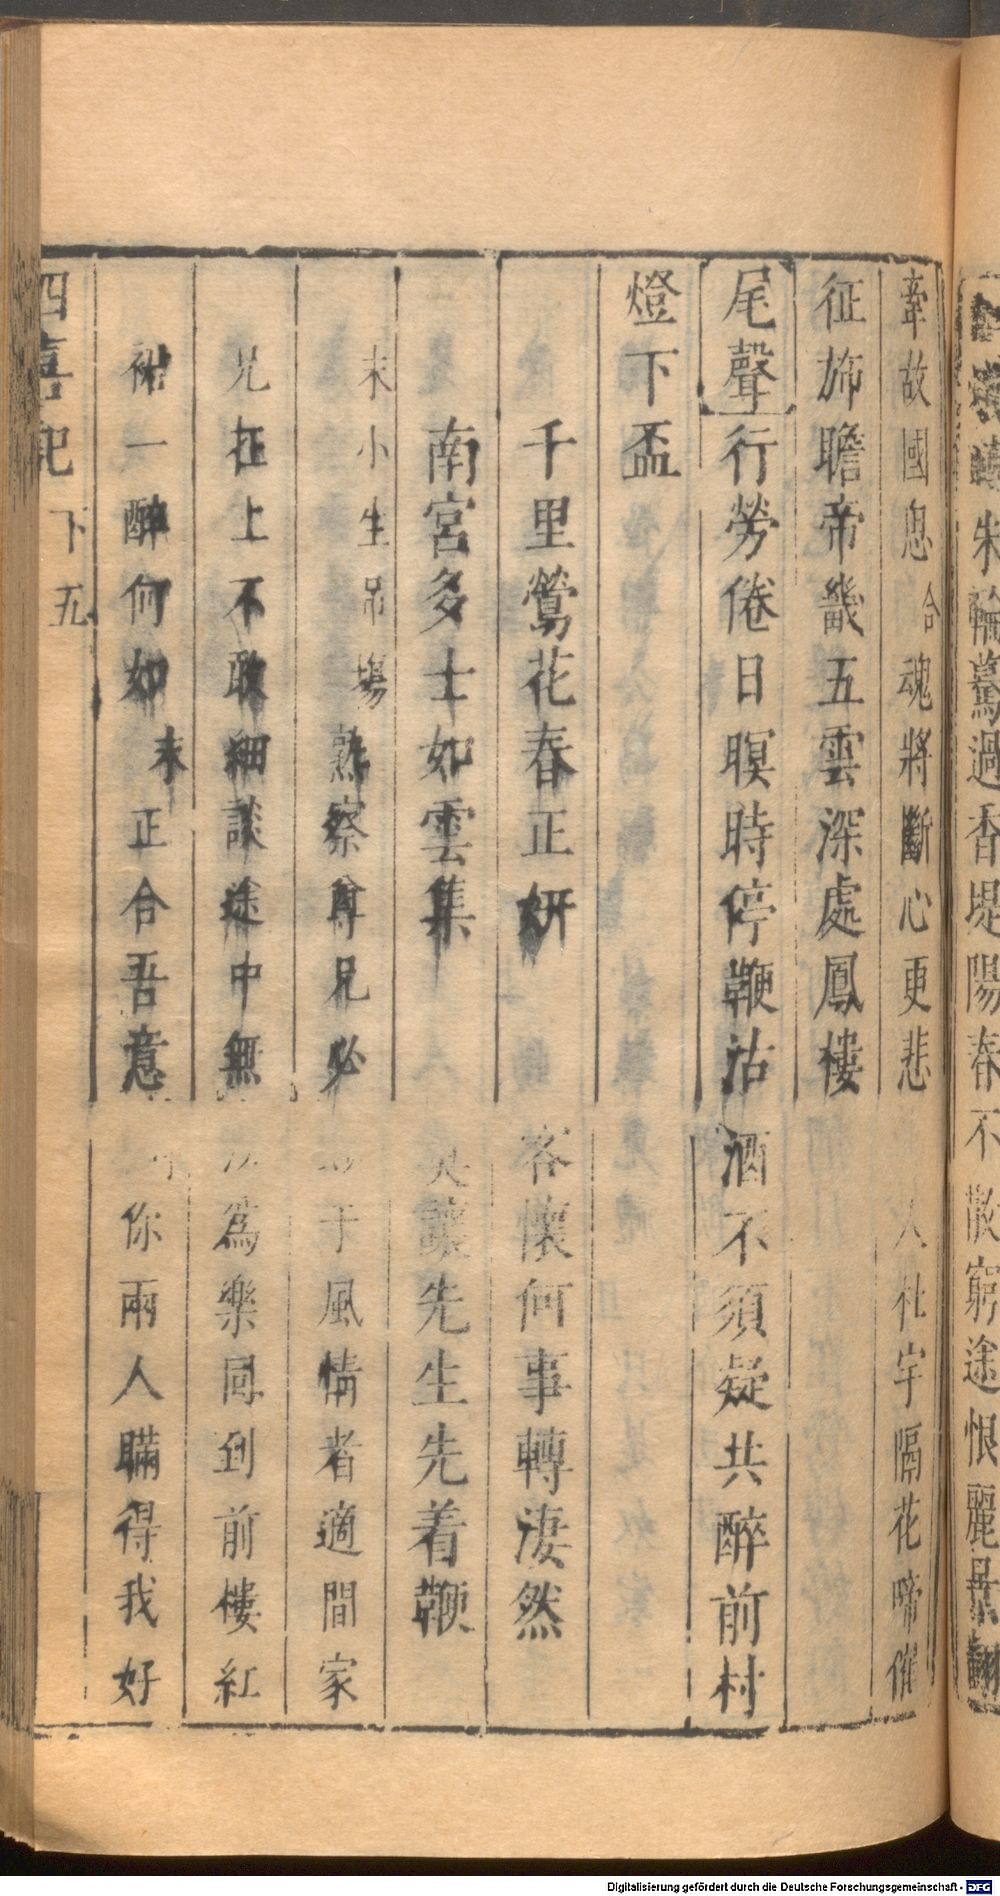 牽故國思合魂將斷心更悲人杜宇隔花啼催
征旆瞻帝畿五雲深處鳳樓
尾聲行勞倦日暝時停鞭沽酒不須疑共醉前村
燈下盃
千里鶯花春正妍客懷何事轉淒然
南宮多士如雲集莫讓先生先着鞭
末小生吊場熟察尊兄必于風情者適間家
兄在上不敢細談途中無以為樂同到前樓紅
裙一醉何如末正合吾意你兩人瞞得我好
四喜記 下 五
朱輪驀過香堤陽春不散窮途恨麗
Digitalisierung gefördert durch die Deutsche Forschungsgemeinschaft - DFG